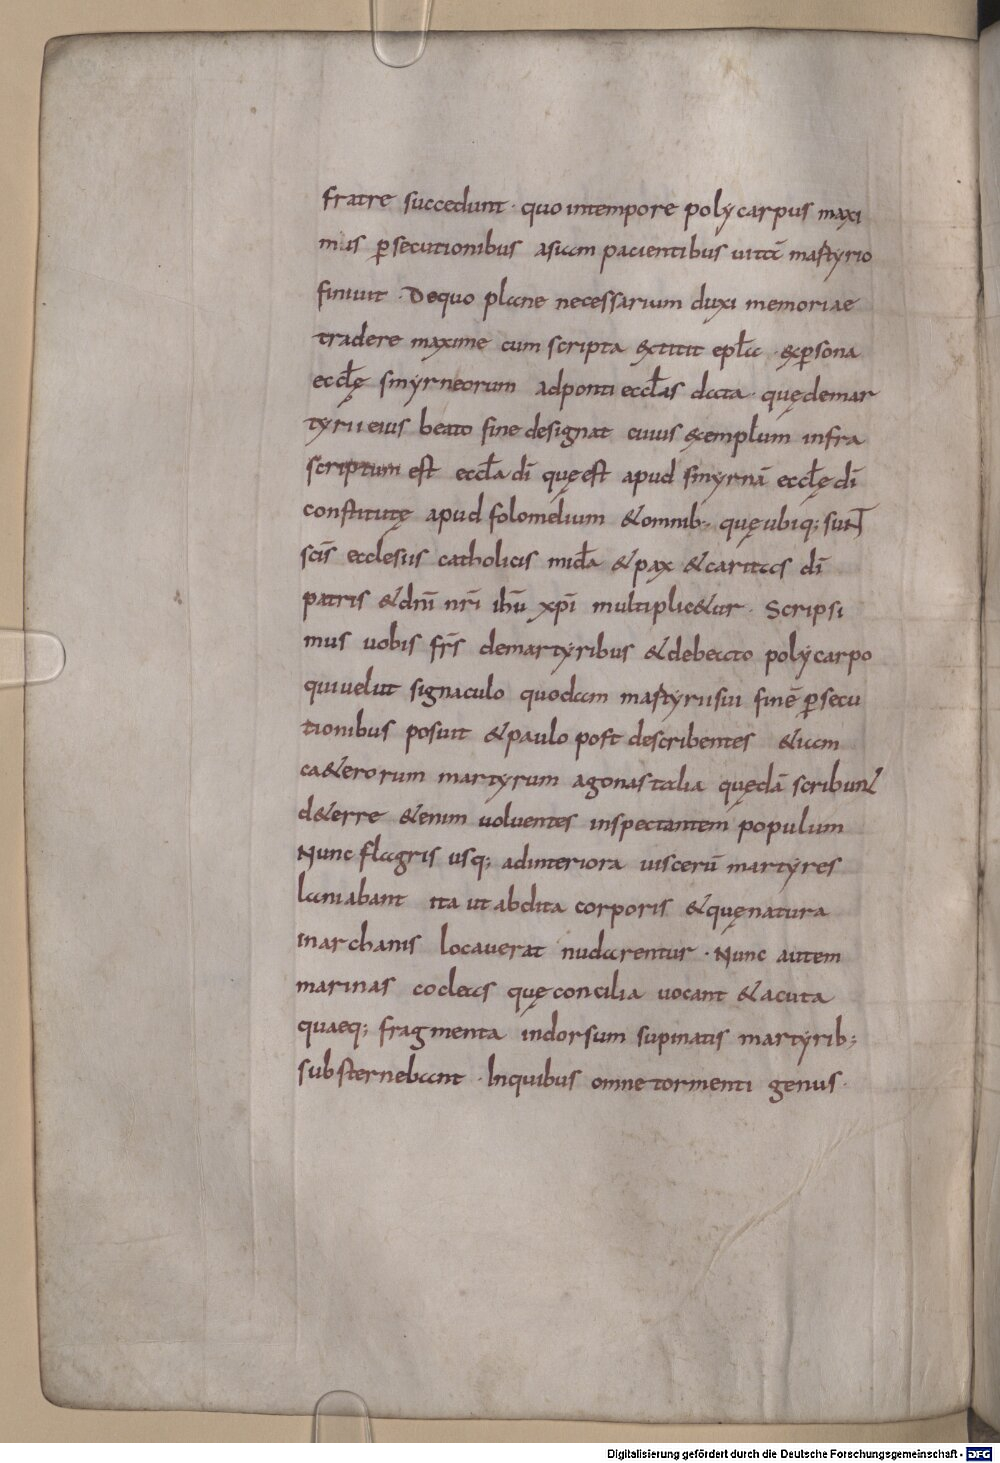 fratre succedunt · quo intempore polycarpus maxi
mis p̱secutionibus asiam pacientibus uitā martyrio
finiuit · De quo plane necessarium duxi memoriae
tradere maxime cum scripta &xtitit epl̄a · & p̱sona
eccl̄ę smyrneorum ad ponti eccl̄as data · quę de mar
tyrii eius beato fine designat cuius &xemplum infra
scriptum est eccl̄a dī quę est apud smyrnā eccl̄ę dī
constitutę apud folomelium & omnib; quę ubiq; sunt
scīs ecclesiis catholicis mīda & pax & caritas dī
patris & dn̄i nr̄i ih̄u xp̄i multiplic&ur · Scripsi
mus uobis fr̄s de martyribus & de beato polycarpo
qui uelut signaculo quodam martyrii sui finē p̱secu
tionibus posuit & paulo post describentes &iam
ca&erorum martyrum agonas talia quędā scribunt
d&erre &enim uoluentes inspectantem populum
Nunc flagris usq; ad interiora uiscerū martyres
laniabant ita ut abdita corporis & quę natura
in archanis locauerat nudarentur · Nunc autem
marinas cocleas quę concilia uocant & acuta
quaeq; fragmenta in dorsum supinatis martyrib;
substernebant · In quibus omne tormenti genus ·
Digitalisierung gefördert durch die Deutsche Forschungsgemeinschaft - DFG